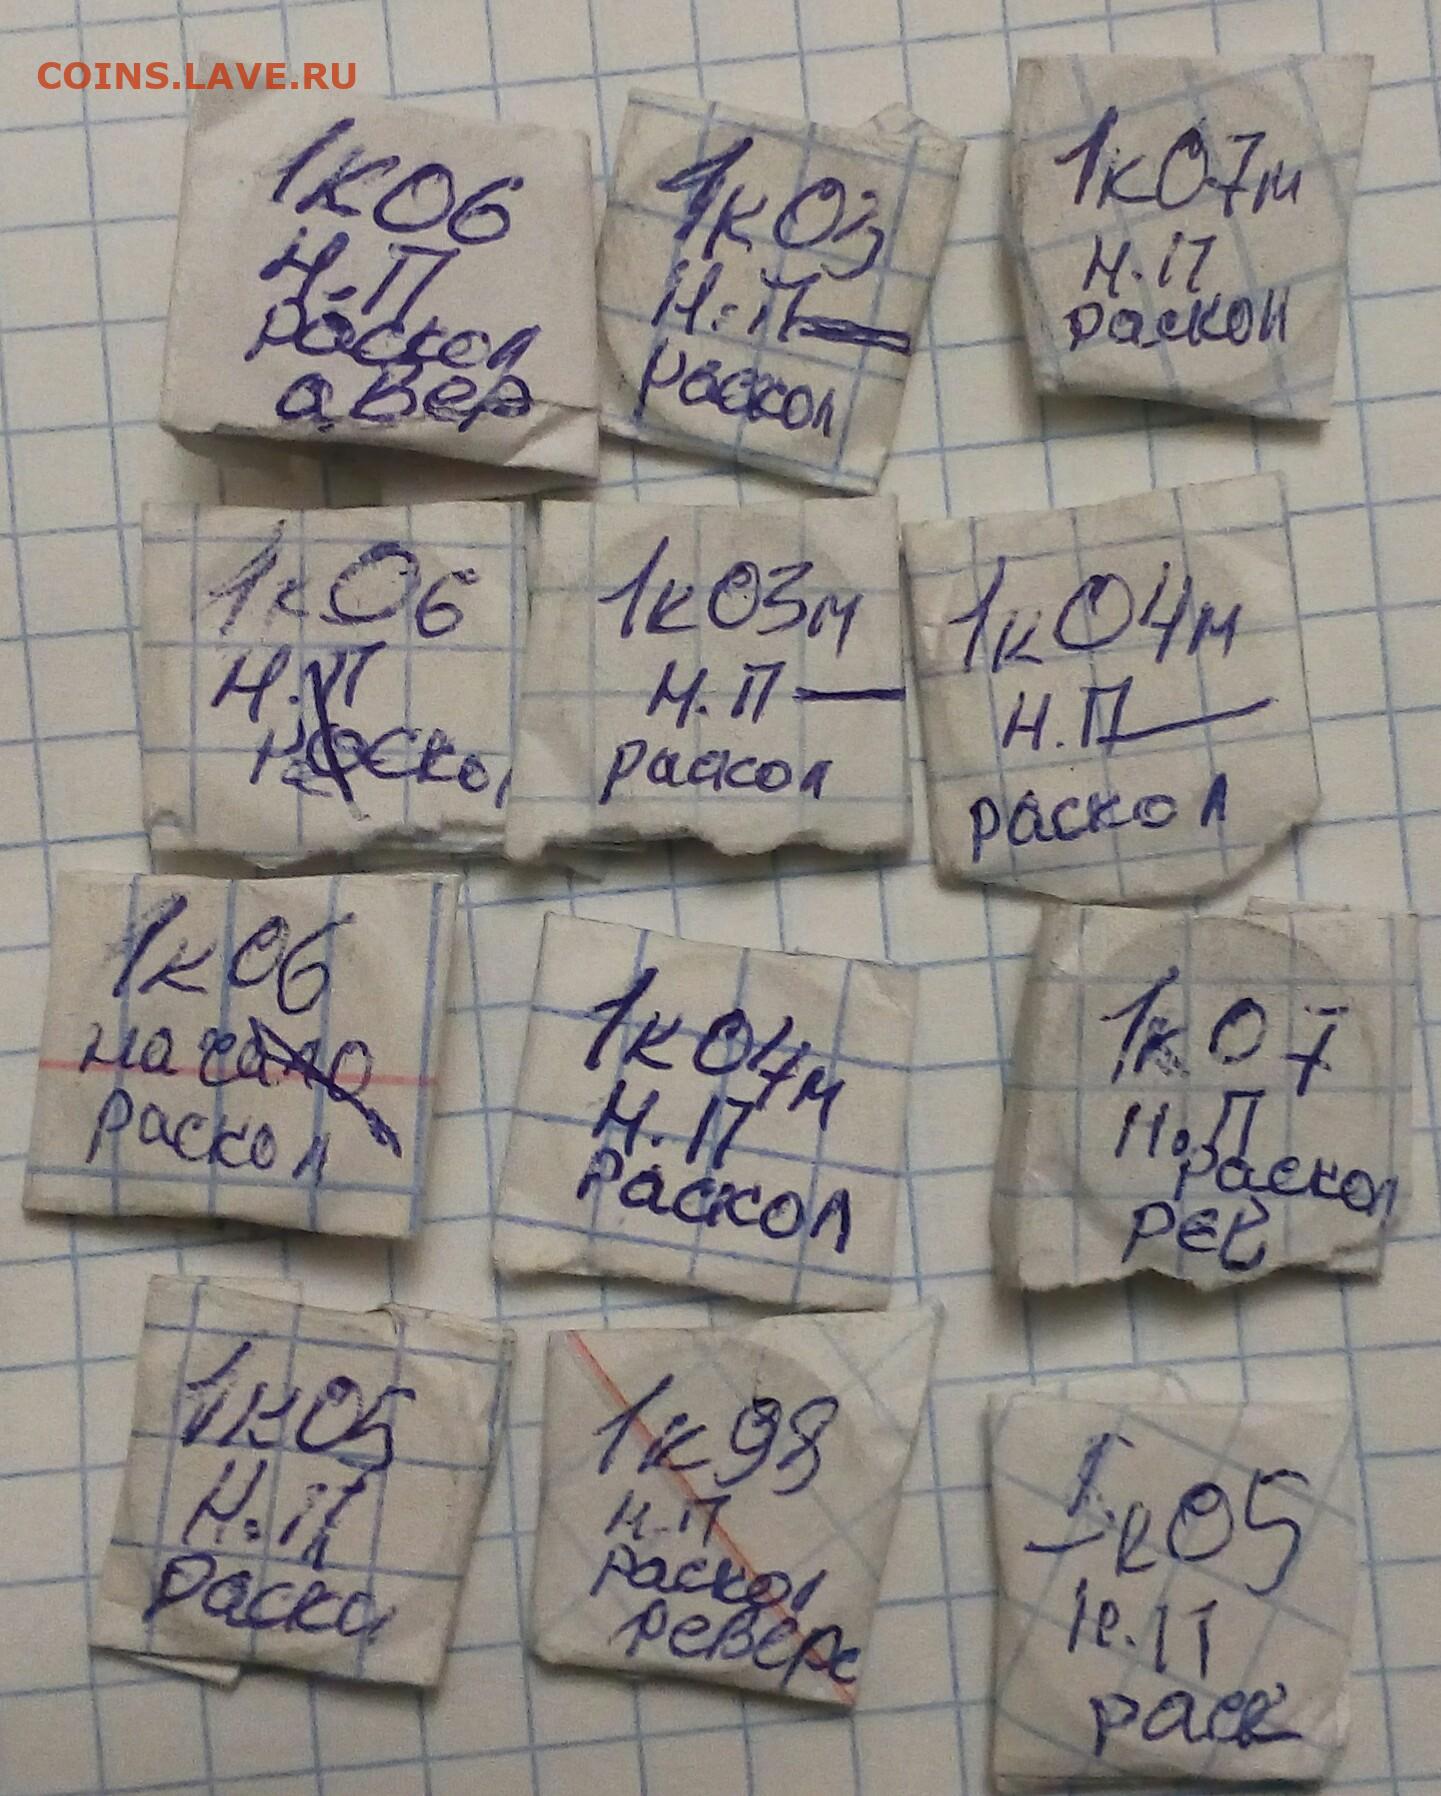 COINS.LAVE.RU
1к06
Н.П
раскол
авер
1к03
Н.П
раскол
1к07м
Н.П
раскол
1к06
Н.П
раскол
1к03м
Н.П
раскол
1к04м
Н.П
раскол
1к06
начало
раскол
1к04м
Н.П
раскол
1к07
Н.П
раскол
рев
1к05
Н.П
раскол
1к98
Н.П
раскол
реверс
1к05
Н.П
раск